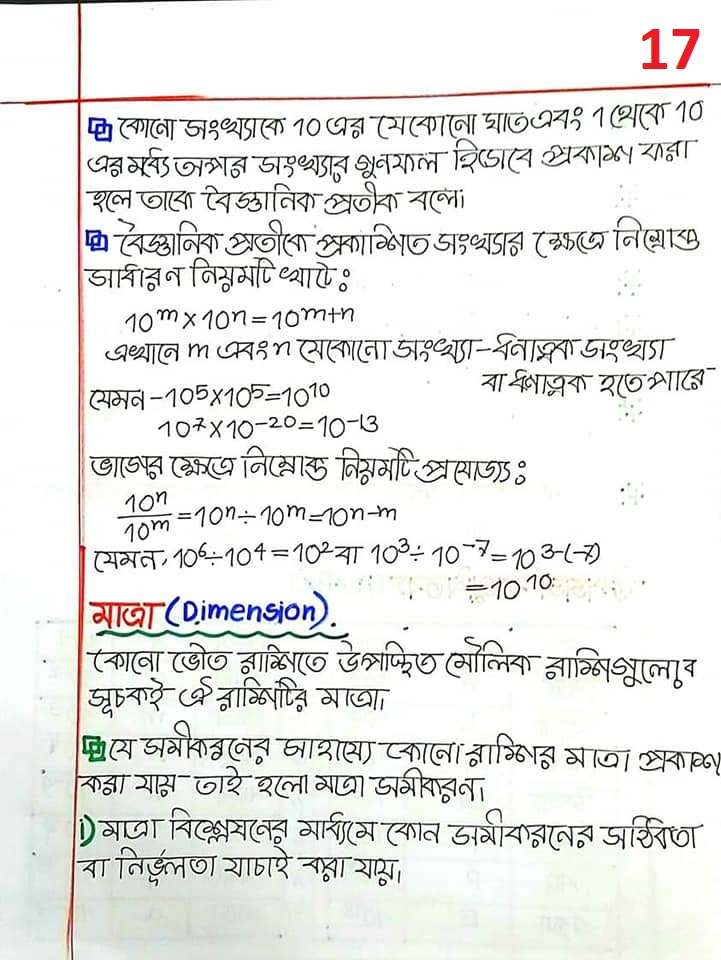 17
কোনো সংখ্যাকে 10 এর যেকোনো ঘাত এবং 1 থেকে 10
এর মধ্যে অপর সংখ্যার গুনফল হিসেবে প্রকাশ করা
হলে তাকে বৈজ্ঞানিক প্রতীক বলে।
বৈজ্ঞানিক প্রতীকে প্রকাশিত সংখ্যার ক্ষেত্রে নিম্নোক্ত
সাধারন নিয়মটি খাটে:
10^m × 10^n = 10^m+n
এখানে m এবং n যেকোনো সংখ্যা - ধনাত্নক সংখ্যা
বা ঋণাত্নক হতে পারে
যেমন - 10^5 × 10^5 = 10^10
10^7 × 10^-20 = 10^-13
ভাগের ক্ষেত্রে নিম্নোক্ত নিয়মটি প্রযোজ্য:
10^n/10^m = 10^n ÷ 10^m = 10^n-m
যেমন, 10^6 ÷ 10^4 = 10^2 বা 10^3 ÷ 10^-7 = 10^3-(-7)
= 10^10
মাত্রা (Dimension).
কোনো ভৌত রাশিতে উপস্থিত মৌলিক রাশিগুলোর
সূচকই ঐ রাশিটির মাত্রা।
যে সমীকরনের সাহায্যে কোনো রাশির মাত্রা প্রকাশ
করা যায় তাই হলো মাত্রা সমীকরন।
i) মাত্রা বিশ্লেষনের মাধ্যমে কোন সমীকরনের সঠিকতা
বা নির্ভূলতা যাচাই করা যায়।